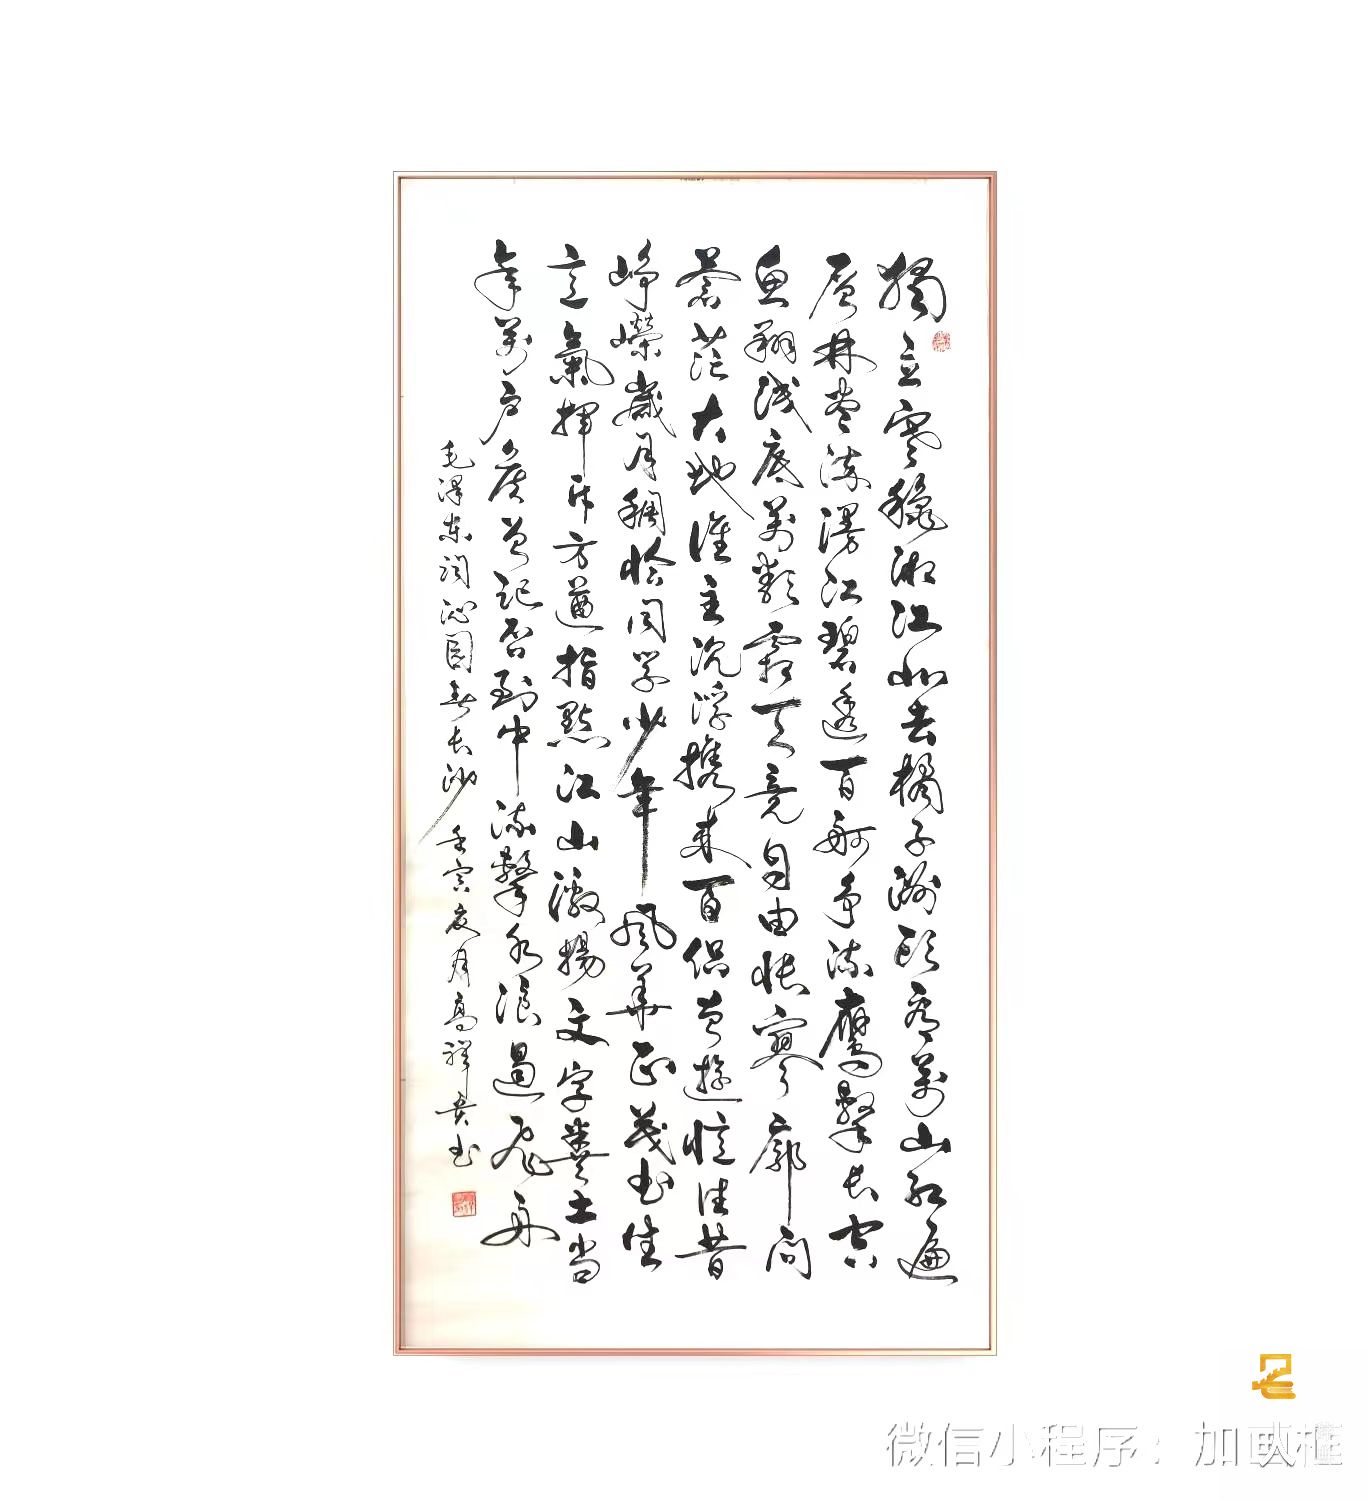 獨立寒秋湘江北去橘子洲頭看萬山紅遍
層林盡染漫江碧透百舸爭流鷹擊長空
魚翔淺底萬類霜天競自由悵寥廓問
蒼茫大地誰主沉浮携來百侶曾遊憶往昔
崢嶸歲月稠恰同學少年風華正茂書生
意氣揮斥方遒指點江山激揚文字糞土當
年萬户侯曾記否到中流擊水浪遏飛舟
毛澤東詞沁園春長沙 壬寅夏月高祥貴書
微信小程序：加画框